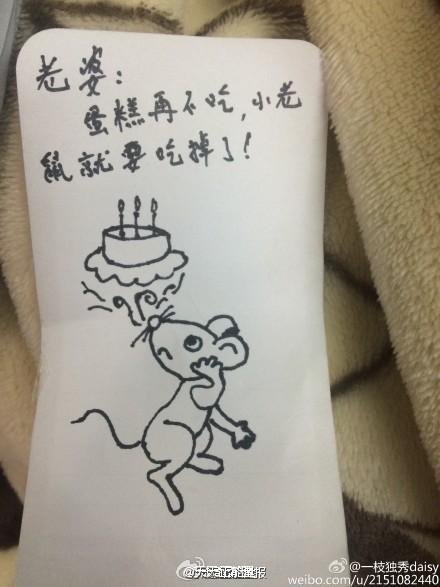 老婆：
蛋糕再不吃，小老
鼠就要吃掉了！
@一枝独秀daisy
weibo.com/u/2151082440